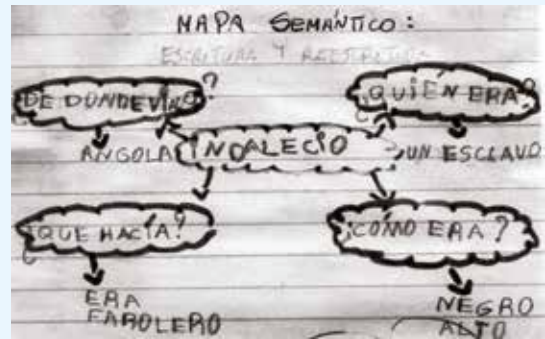 MAPA SEMÁNTICO:
ESCRITURA Y
¿DE DONDE VINO?
¿QUIÉN ERA?
ANGOLA
INDALECIO
UN ESCLAVO
¿QUE HACÍA?
¿CÓMO ERA?
ERA
FAROLERO
NEGRO
ALTO